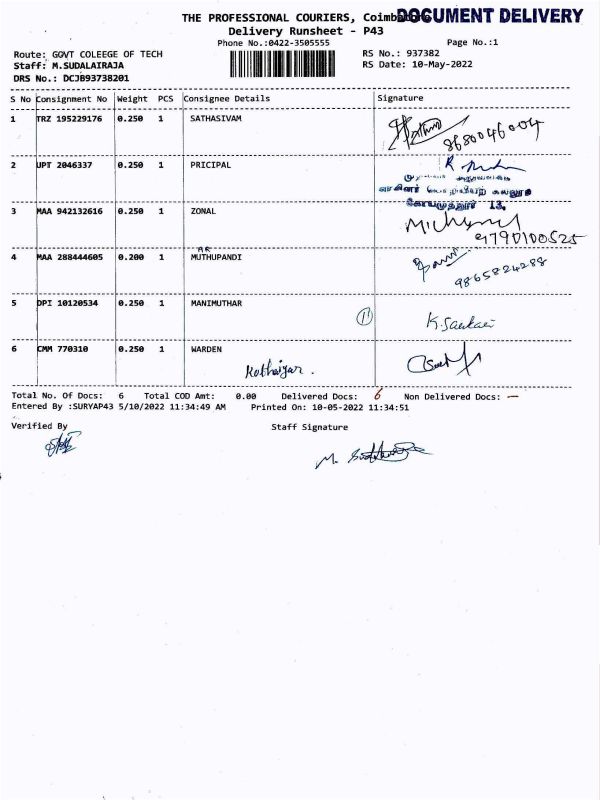 THE PROFESSIONAL COURIERS, Coimbatore
DOCUMENT DELIVERY
Delivery Runsheet - P43
Phone No.:0422-3505555
Page No.:1
Route: GOVT COLEEGE OF TECH
RS No.: 937382
Staff: M.SUDALAIRAJA
RS Date: 10-May-2022
DRS No.: DCJB93738201
S No Consignment No Weight PCS Consignee Details Signature
1 TRZ 195229176 0.250 1 SATHASIVAM
8680046004
2 UPT 2046337 0.250 1 PRICIPAL
கோயமுத்தூர் 13.
3 MAA 942132616 0.250 1 ZONAL
9790100525
AR
4 MAA 288444605 0.200 1 MUTHUPANDI
9865824288
5 DPI 10120534 0.250 1 MANIMUTHAR
K. Sankari
6 CMM 770310 0.250 1 WARDEN
Kothaiyar.
Total No. Of Docs: 6 Total COD Amt: 0.00 Delivered Docs: 6 Non Delivered Docs: —
Entered By :SURYAP43 5/10/2022 11:34:49 AM Printed On: 10-05-2022 11:34:51
Verified By Staff Signature